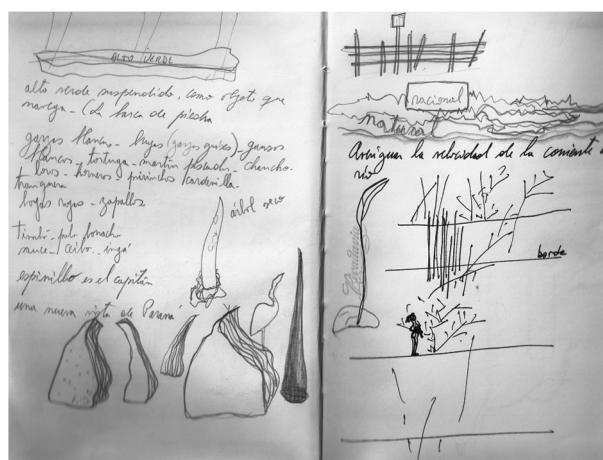 ALTO VERDE
alto verde suspendido, como objeto que
navega - (La barca de piedra
garzas blancas - brujas (garzas grises) - gansos
blancos - tortuga - martín pescador - chancho
loros - horneros pirinchos cardenilla -
tranquera
hojas rojas - zapallos
árbol seco
Timbó - palo borracho
sauce - ceibo - ingá
espinillo es el capitán
una nueva vista de Paraná
racional
natural
Averiguar la velocidad de la corriente
río
borde